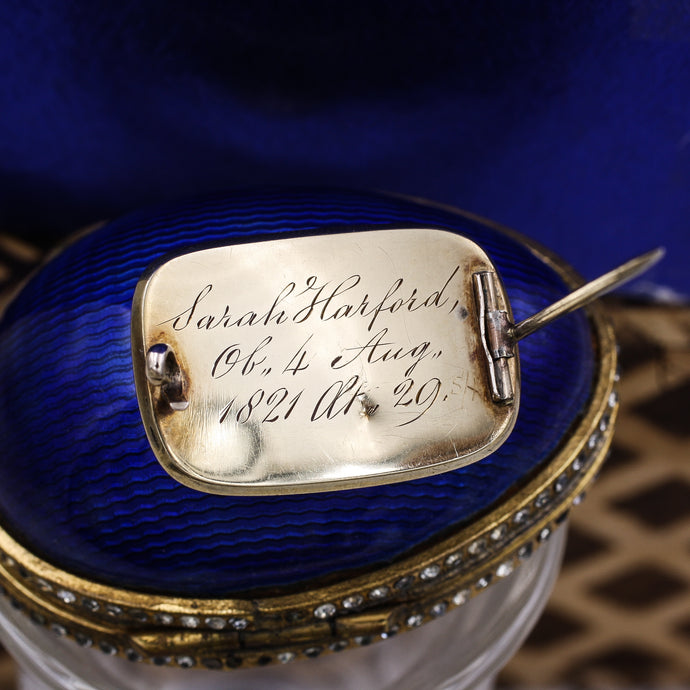 Sarah Harford,
Ob,, 4 Aug,,
1821 Æt,, 29.